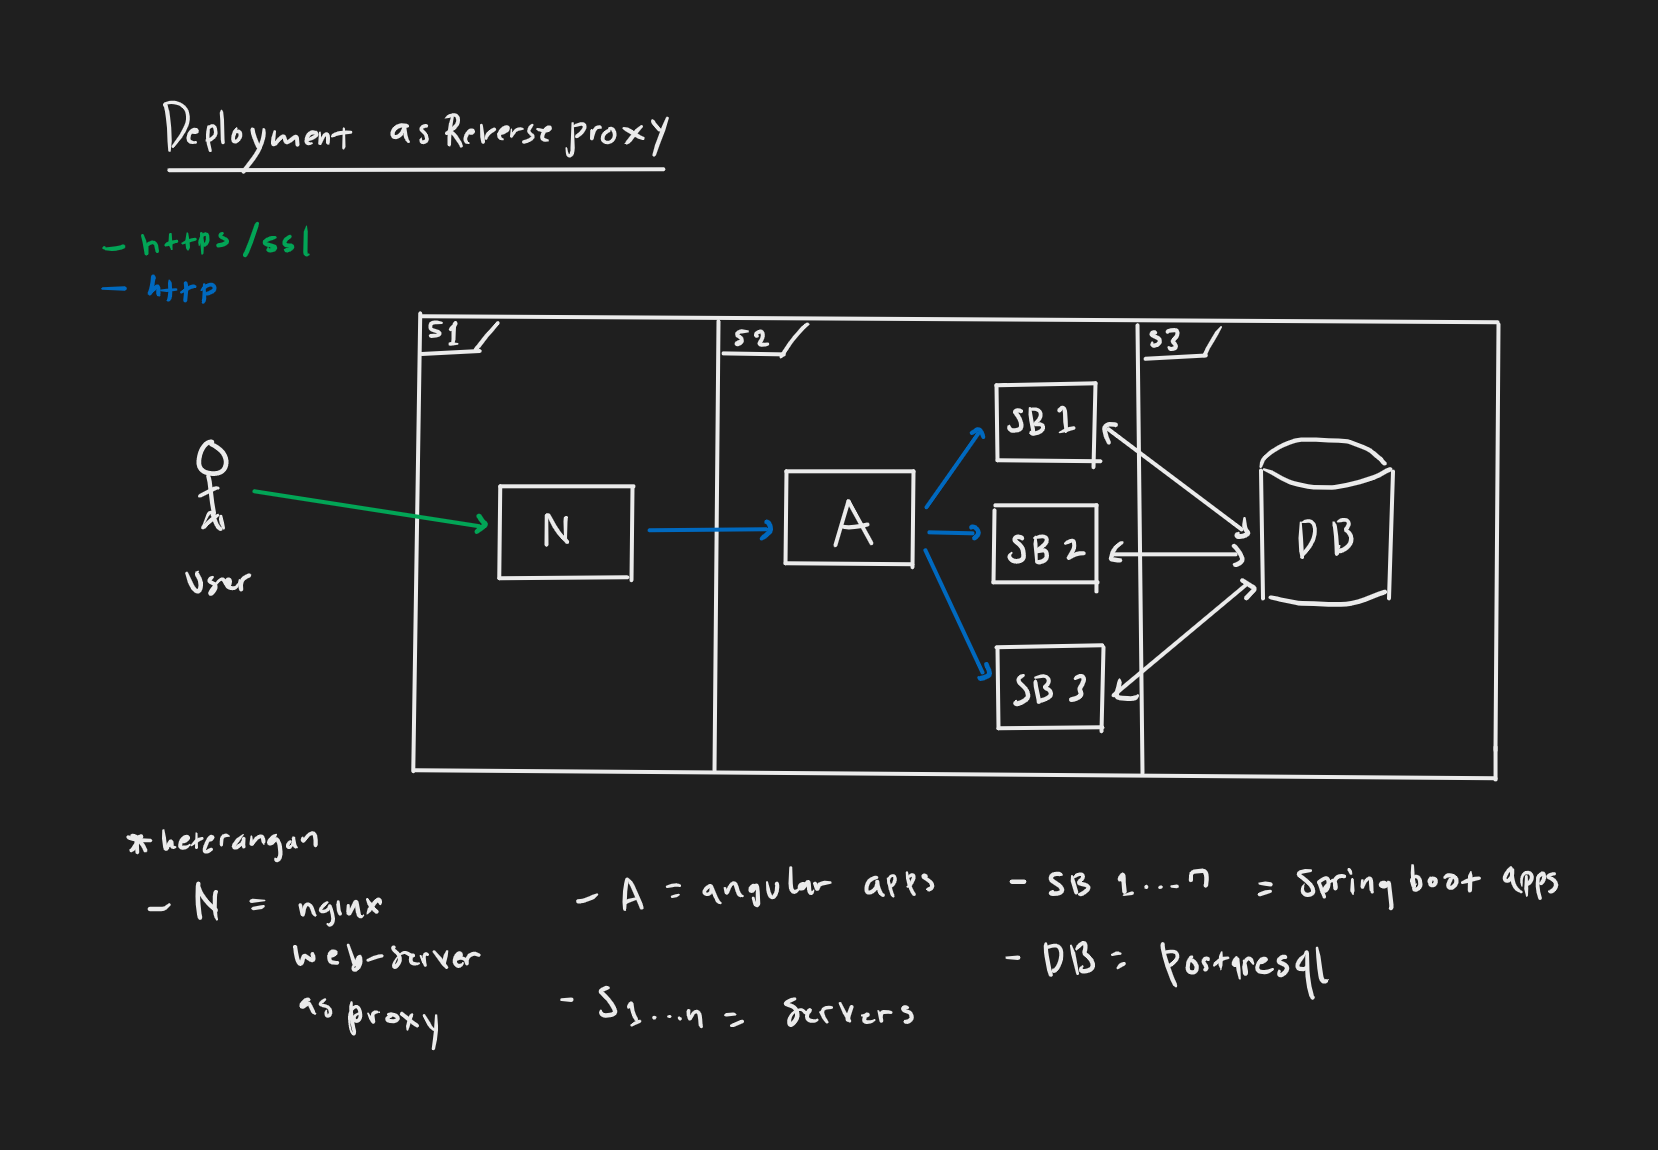 Deployment as Reverse proxy
- https/ssl
- http
S1
S2
S3
SB 1
N
A
SB 2
DB
User
SB 3
* keterangan
- N = nginx
web-server
as proxy
- A = angular apps
- S1...n = servers
- SB 1...n = Spring boot apps
- DB = postgresql